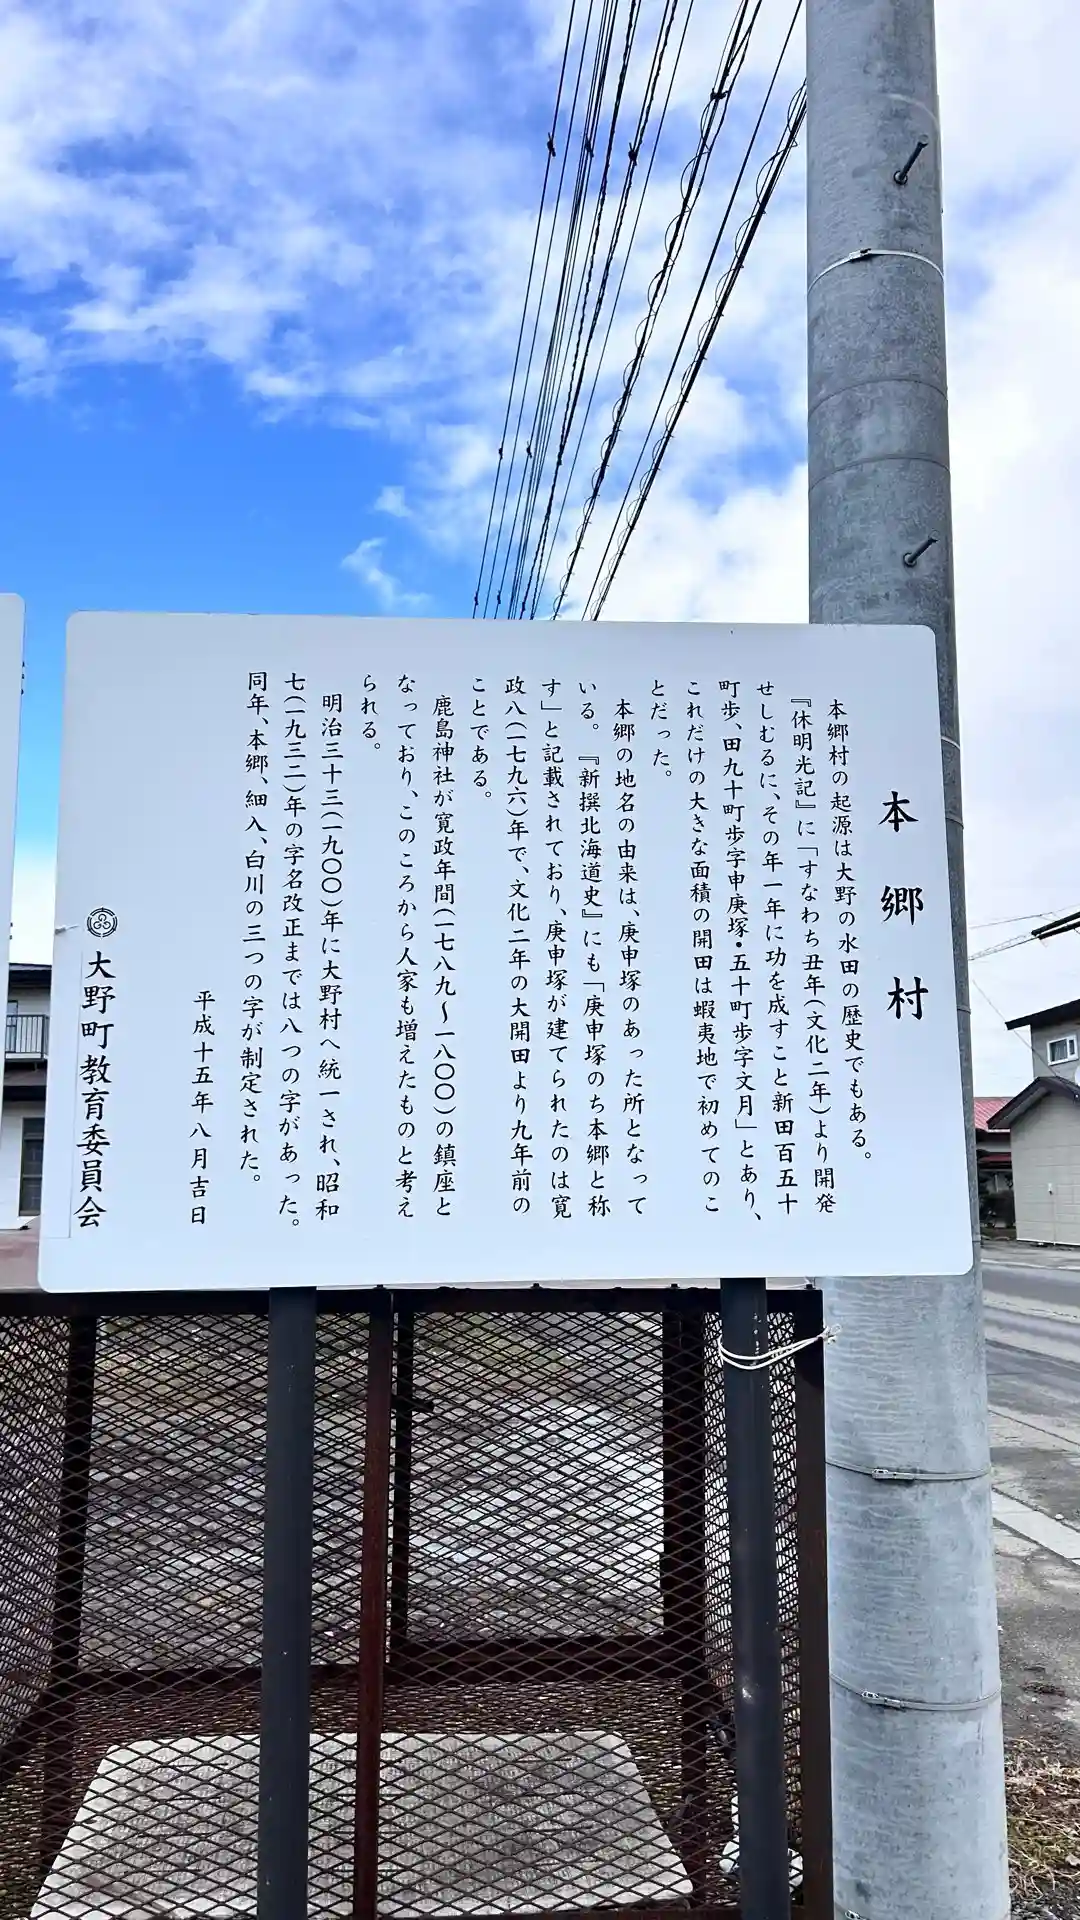 本郷村
本郷村の起源は大野の水田の歴史でもある。
『休明光記』に「すなわち丑年(文化二年)より開発
せしむるに、その年一年に功を成すこと新田百五十
町歩、田九十町歩字申庚塚・五十町歩字文月」とあり、
これだけの大きな面積の開田は蝦夷地で初めてのこ
とだった。
本郷の地名の由来は、庚申塚のあった所となって
いる。『新撰北海道史』にも「庚申塚のち本郷と称
す」と記載されており、庚申塚が建てられたのは寛
政八(一七九六)年で、文化二年の大開田より九年前の
ことである。
鹿島神社が寛政年間(一七八九〜一八〇〇)の鎮座と
なっており、このころから人家も増えたものと考え
られる。
明治三十三(一九〇〇)年に大野村へ統一され、昭和
七(一九三二)年の字名改正までは八つの字があった。
同年、本郷、細入、白川の三つの字が制定された。
平成十五年八月吉日
大野町教育委員会